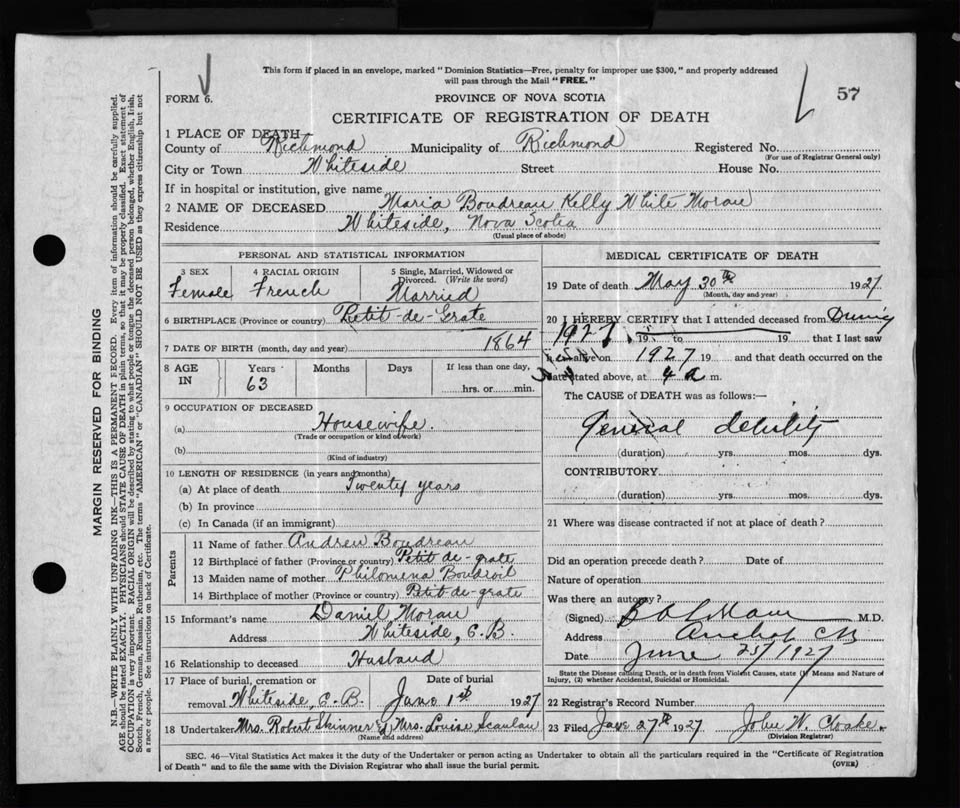 This form if placed in an envelope, marked "Dominion Statistics—Free, penalty for improper use $300," and properly addressed
will pass through the Mail "FREE."
FORM 6.
PROVINCE OF NOVA SCOTIA
57
CERTIFICATE OF REGISTRATION OF DEATH
1 PLACE OF DEATH
County of Richmond Municipality of Richmond Registered No.
(For use of Registrar General only)
City or Town Whiteside Street House No.
If in hospital or institution, give name
2 NAME OF DECEASED Maria Boudreau Kelly White Moran
Residence Whiteside, Nova Scotia
(Usual place of abode)
PERSONAL AND STATISTICAL INFORMATION
3 SEX Female
4 RACIAL ORIGIN French
5 Single, Married, Widowed or Divorced. (Write the word) Married
6 BIRTHPLACE (Province or country) Petit-de-Grate
7 DATE OF BIRTH (month, day and year) 1864
8 AGE IN Years 63 Months Days If less than one day, hrs. or min.
9 OCCUPATION OF DECEASED
(a) Housewife.
(Trade or occupation or kind of work)
(b)
(Kind of industry)
10 LENGTH OF RESIDENCE (in years and months)
(a) At place of death Twenty years
(b) In province
(c) In Canada (if an immigrant)
Parents
11 Name of father Andrew Boudreau
12 Birthplace of father (Province or country) Petit-de-grate
13 Maiden name of mother Philomena
14 Birthplace of mother (Province or country) Petit-de-grate
15 Informant's name Daniel Moran
Address Whiteside, C.B.
16 Relationship to deceased Husband
17 Place of burial, cremation or removal Whiteside, C.B. Date of burial June 1st 1927
18 Undertaker Mrs. Robert Skinner & Mrs. Louise Scanlan
(Name and address)
MEDICAL CERTIFICATE OF DEATH
19 Date of death May 30th 1927
(Month, day and year)
20 I HEREBY CERTIFY that I attended deceased from During
1927 19 to 19 that I last saw
h alive on 1927 19 and that death occurred on the
date stated above, at 4 a m.
The CAUSE of DEATH was as follows:—
General debility
(duration) yrs. mos. dys.
CONTRIBUTORY
(duration) yrs. mos. dys.
21 Where was disease contracted if not at place of death?
Did an operation precede death? Date of
Nature of operation
Was there an autopsy?
(Signed) M.D.
Address Arichat CB
Date June 25/1927
State the Disease causing Death, or in death from Violent Causes, state (1) Means and Nature of
Injury, (2) whether Accidental, Suicidal or Homicidal.
22 Registrar's Record Number
23 Filed June 27th 1927 John W. Cloake.
(Division Registrar)
SEC. 46—Vital Statistics Act makes it the duty of the Undertaker or person acting as Undertaker to obtain all the particulars required in the "Certificate of Registration
of Death" and to file the same with the Division Registrar who shall issue the burial permit.
(OVER)
MARGIN RESERVED FOR BINDING
N.B.—WRITE PLAINLY WITH UNFADING INK—THIS IS A PERMANENT RECORD. Every item of information should be carefully supplied.
AGE should be stated EXACTLY. PHYSICIANS should STATE CAUSE OF DEATH in plain terms, so that it may be properly classified. Exact statement of
OCCUPATION is very important. RACIAL ORIGIN will be described by stating to what people or tongue the deceased person belonged, whether English, Irish,
Scotch, French, German, Russian, Ruthenian, etc. The terms "AMERICAN" or "CANADIAN" SHOULD NOT BE USED as they express citizenship but not
a race or people. See instructions on back of Certificate.